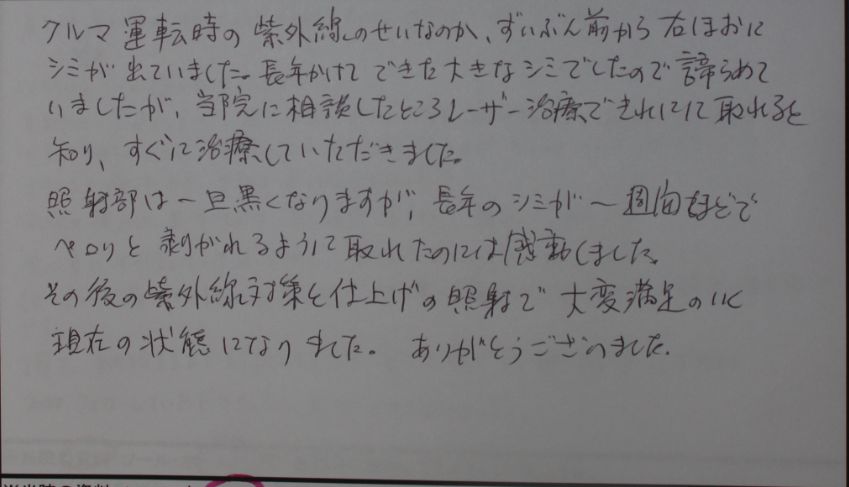 クルマ運転時の紫外線のせいなのか、ずいぶん前から右ほおに
シミが出ていました。長年かけてできた大きなシミでしたので諦らめて
いましたが、当院に相談したところレーザー治療できれいに取れると
知り、すぐに治療していただきました。
照射部は一旦黒くなりますが、長年のシミが一週間ほどで
ペロリと剥がれるように取れたのには感動しました。
その後の紫外線対策と仕上げの照射で大変満足のいく
現在の状態になりました。ありがとうございました。